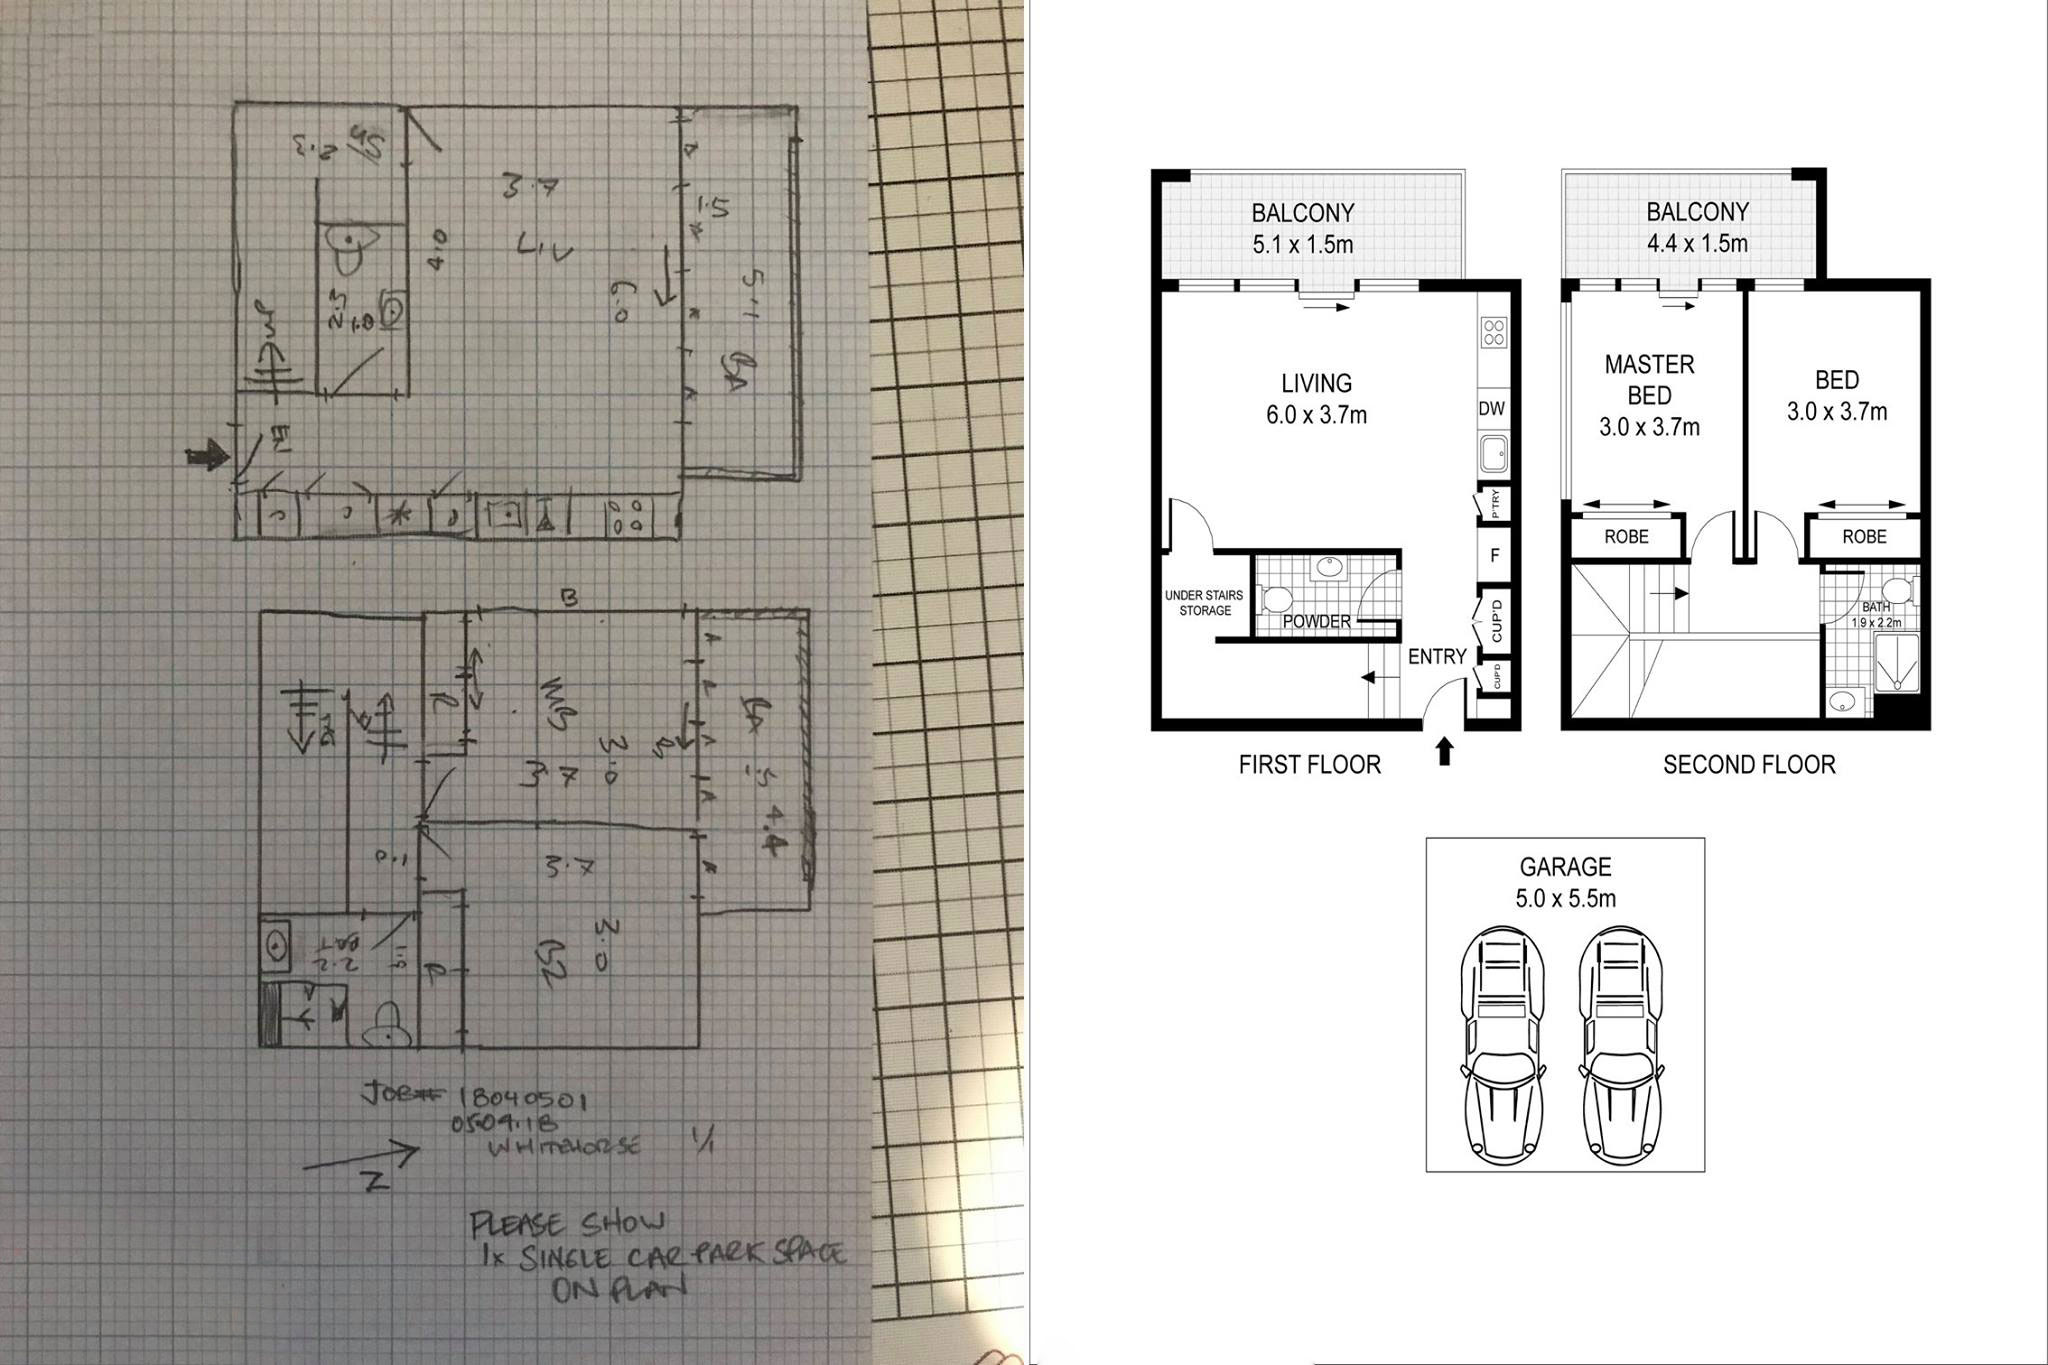 S/h 2.3
3.7
LIV
4.0
6.0
1.5
5.1
BA
2.3
1.0
UP
Et
C
C
P
B
R
MB
3.0
3.7
BA
1.5
4.4
DN
1.0
3.7
3.0
B2
BAT
2.2
1.9
R
JOB# 18040501
05.04.18
WHITEHORSE 1/1
N
PLEASE SHOW
1x SINGLE CAR PARK SPACE
ON PLAN
BALCONY
5.1 x 1.5m
LIVING
6.0 x 3.7m
DW
P'TRY
F
UNDER STAIRS
STORAGE
POWDER
CUP'D
ENTRY
CUP'D
FIRST FLOOR
BALCONY
4.4 x 1.5m
MASTER
BED
3.0 x 3.7m
BED
3.0 x 3.7m
ROBE
ROBE
BATH
1.9 x 2.2m
SECOND FLOOR
GARAGE
5.0 x 5.5m